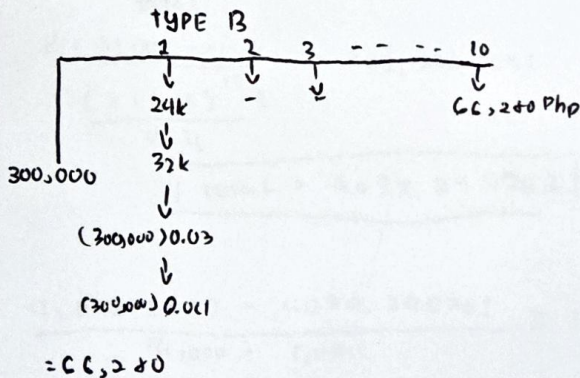 TYPE B
1 2 3 - - - - 10
24k - - 66,280 Php
32k
300,000
(300,000) 0.03
(300,000)
= 66,280